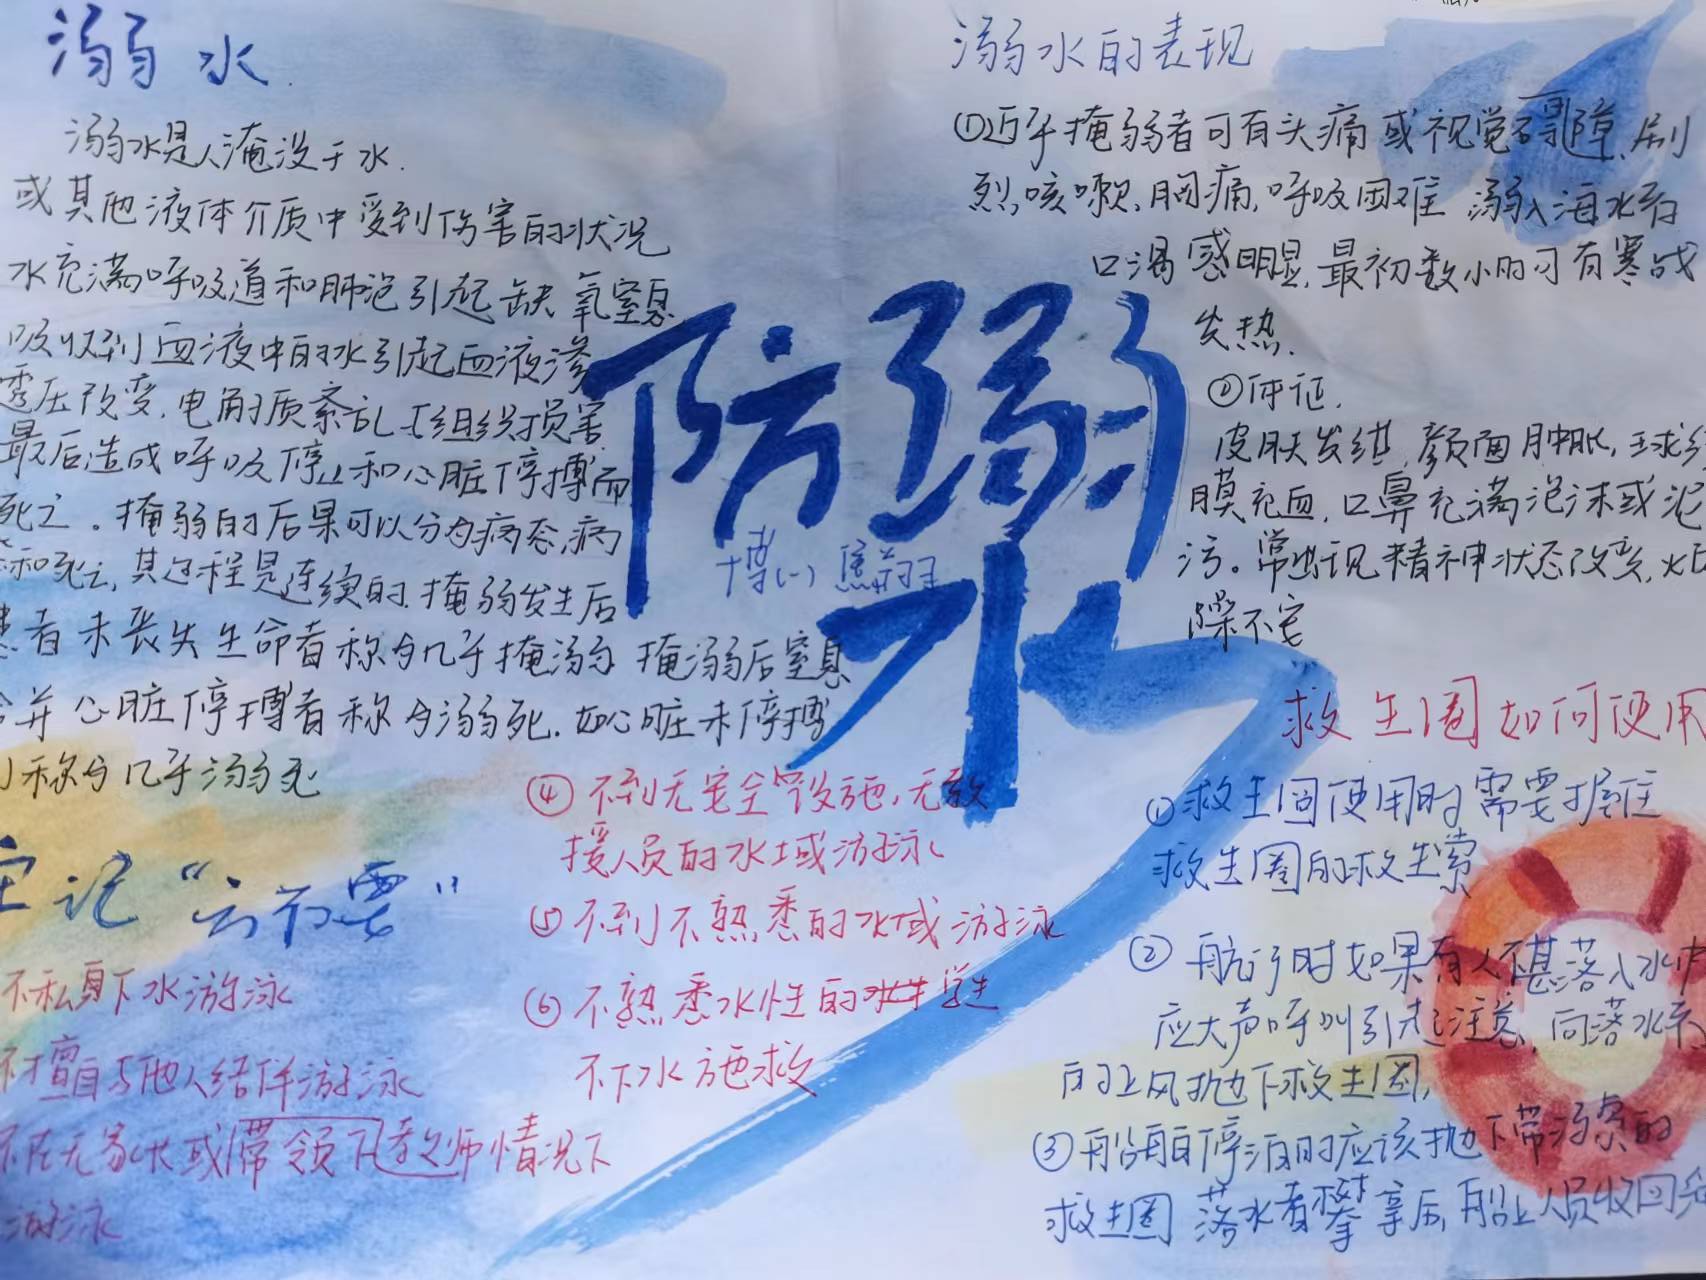 溺水
溺水是人淹没于水.
或其他液体介质中受到伤害的状况
水充满呼吸道和肺泡引起缺氧窒息
吸收到血液中的水引起血液渗
透压改变.电解质紊乱 组织损害
最后造成呼吸停止和心脏停搏而
死亡。掩弱的后果可以分为病态,病
和死亡,其过程是连续的.掩弱发生后
患者未丧失生命者称为几乎掩溺 掩溺后窒息
合并心脏停搏者称为溺死.如心脏未停搏
称为几乎溺死
防溺
水
博(一)
溺水的表现
①近乎掩弱者可有头痛或视觉障,剧
烈咳嗽,胸痛,呼吸困难 溺入海水者
口渴感明显,最初数小时可有寒战
发热.
②体征.
皮肤发绀,颜面肿胀,球结
膜充血,口鼻充满泡沫或泥
污。常出现精神状态改变,烦
躁不安
牢记“六不要”
不私自下水游泳
不擅自与他人结伴游泳
不在无家长或带领下教师情况下
游泳
④不到无安全设施,无救
援人员的水域游泳
⑤不到不熟悉的水域游泳
⑥不熟悉水性的学生
不下水施救
救生圈如何使用
①救生圈使用时需要握住
救生圈的救生索
②航行时如果有人不甚落入水中
应大声呼叫引起注意,向落水
的上风抛下救生圈,
③船舶停泊时应该抛下带溺索的
救生圈 落水者攀拿后,船上人员收回